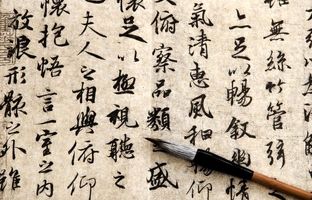 無絲竹管弦之
足以暢敘幽情
氣清惠風和暢仰
俯察品類盛
足以極視聽之
夫人之相與俯仰
懷抱悟言一室之內
放浪形骸之外雖